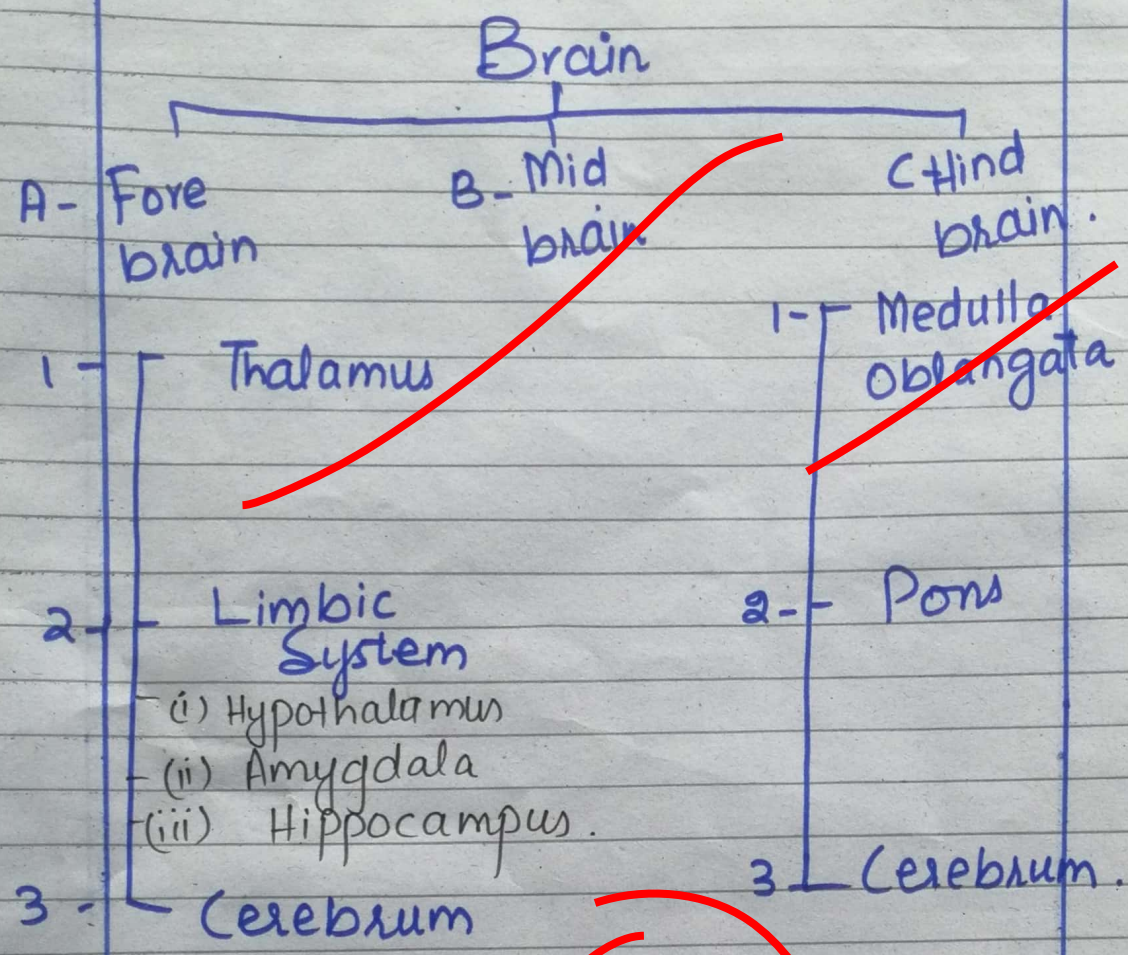 Brain
A- Fore
brain
B- Mid
brain
C Hind
brain.
1- Thalamus
2- Limbic
System
(i) Hypothalamus
(ii) Amygdala
(iii) Hippocampus.
3- Cerebrum
1- Medulla
Oblangata
2- Pons
3 Cerebrum.